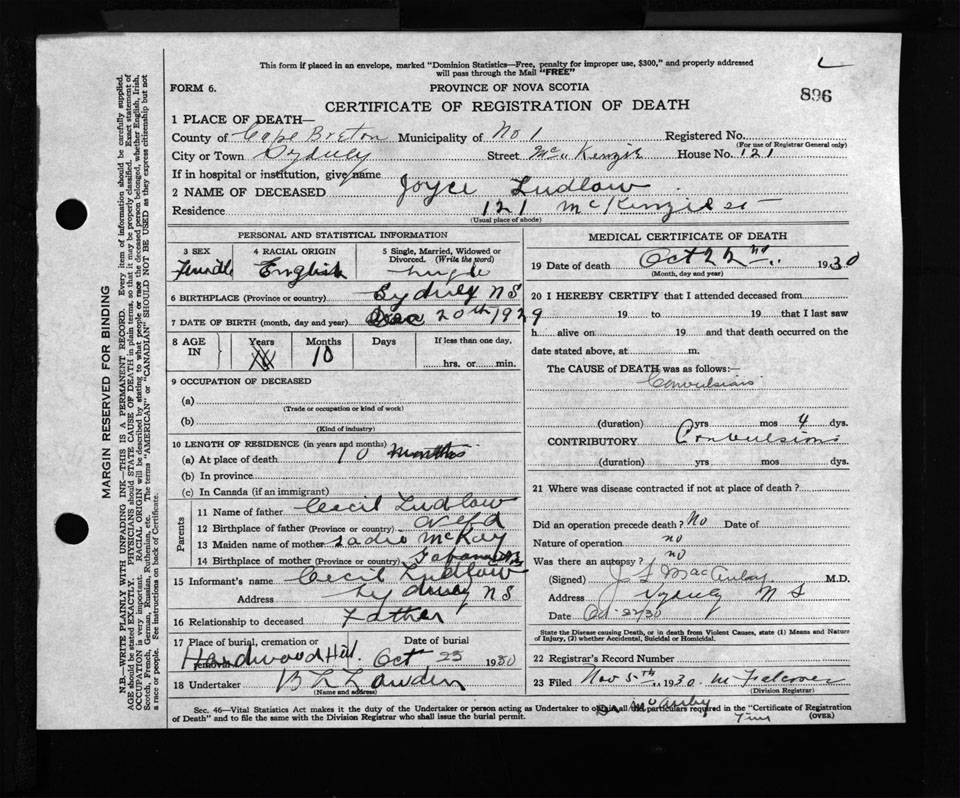 This form if placed in an envelope, marked "Dominion Statistics—Free, penalty for improper use, $300," and properly addressed
will pass through the Mail "FREE"
FORM 6.
PROVINCE OF NOVA SCOTIA
896
CERTIFICATE OF REGISTRATION OF DEATH
1 PLACE OF DEATH—
County of Cape Breton Municipality of No 1 Registered No.
(For use of Registrar General only)
City or Town Sydney Street McKenzie House No. 121
If in hospital or institution, give name
2 NAME OF DECEASED Joyce Ludlow
Residence 121 McKenzie St
(Usual place of abode)
PERSONAL AND STATISTICAL INFORMATION
3 SEX 4 RACIAL ORIGIN 5 Single, Married, Widowed or
Divorced. (Write the word)
Female English Single
6 BIRTHPLACE (Province or country) Sydney NS
7 DATE OF BIRTH (month, day and year) Dec 20th 1929
8 AGE IN Years Months Days If less than one day,
10 hrs. or min.
9 OCCUPATION OF DECEASED
(a)
(Trade or occupation or kind of work)
(b)
(Kind of industry)
10 LENGTH OF RESIDENCE (in years and months)
(a) At place of death 10 months
(b) In province
(c) In Canada (if an immigrant)
Parents
11 Name of father Cecil Ludlow
12 Birthplace of father (Province or country) Nfld
13 Maiden name of mother Sadie McKay
14 Birthplace of mother (Province or country)
15 Informant's name Cecil Ludlow
Address Sydney NS
16 Relationship to deceased Father
17 Place of burial, cremation or Date of burial
removal
Hardwood Hill Oct 23 1930
18 Undertaker
(Name and address)
MEDICAL CERTIFICATE OF DEATH
19 Date of death Oct 22nd 1930
(Month, day and year)
20 I HEREBY CERTIFY that I attended deceased from
19 to 19 that I last saw
h alive on 19 and that death occurred on
date stated above, at m.
The CAUSE of DEATH was as follows:—
Convulsions
(duration) yrs mos 4 dys.
CONTRIBUTORY Convulsions
(duration) yrs mos dys.
21 Where was disease contracted if not at place of death?
Did an operation precede death? No Date of
Nature of operation no
Was there an autopsy? no
(Signed) M.D.
Address Sydney N S
Date Oct 22/30
State the Disease causing Death, or in death from Violent Causes, state (1) Means and Nature
of Injury, (2) whether Accidental, Suicidal or Homicidal.
22 Registrar's Record Number
23 Filed Nov 5th 1930 M Falconer
(Division Registrar)
Sec. 46—Vital Statistics Act makes it the duty of the Undertaker or person acting as Undertaker to obtain all the particulars required in the "Certificate of Registration
of Death" and to file the same with the Division Registrar who shall issue the burial permit.
(OVER)
MARGIN RESERVED FOR BINDING
N.B.—WRITE PLAINLY WITH UNFADING INK—THIS IS A PERMANENT RECORD. Every item of information should be carefully supplied.
AGE should be stated EXACTLY. PHYSICIANS should STATE CAUSE OF DEATH in plain terms, so that it may be properly classified. Exact statement of
OCCUPATION is very important. RACIAL ORIGIN will be described by stating to what people or race the deceased person belonged, whether English, Irish,
Scotch, French, German, Russian, Ruthenian, etc. The terms "AMERICAN" or "CANADIAN" SHOULD NOT BE USED as they express citizenship but not
a race or people. See instructions on back of Certificate.